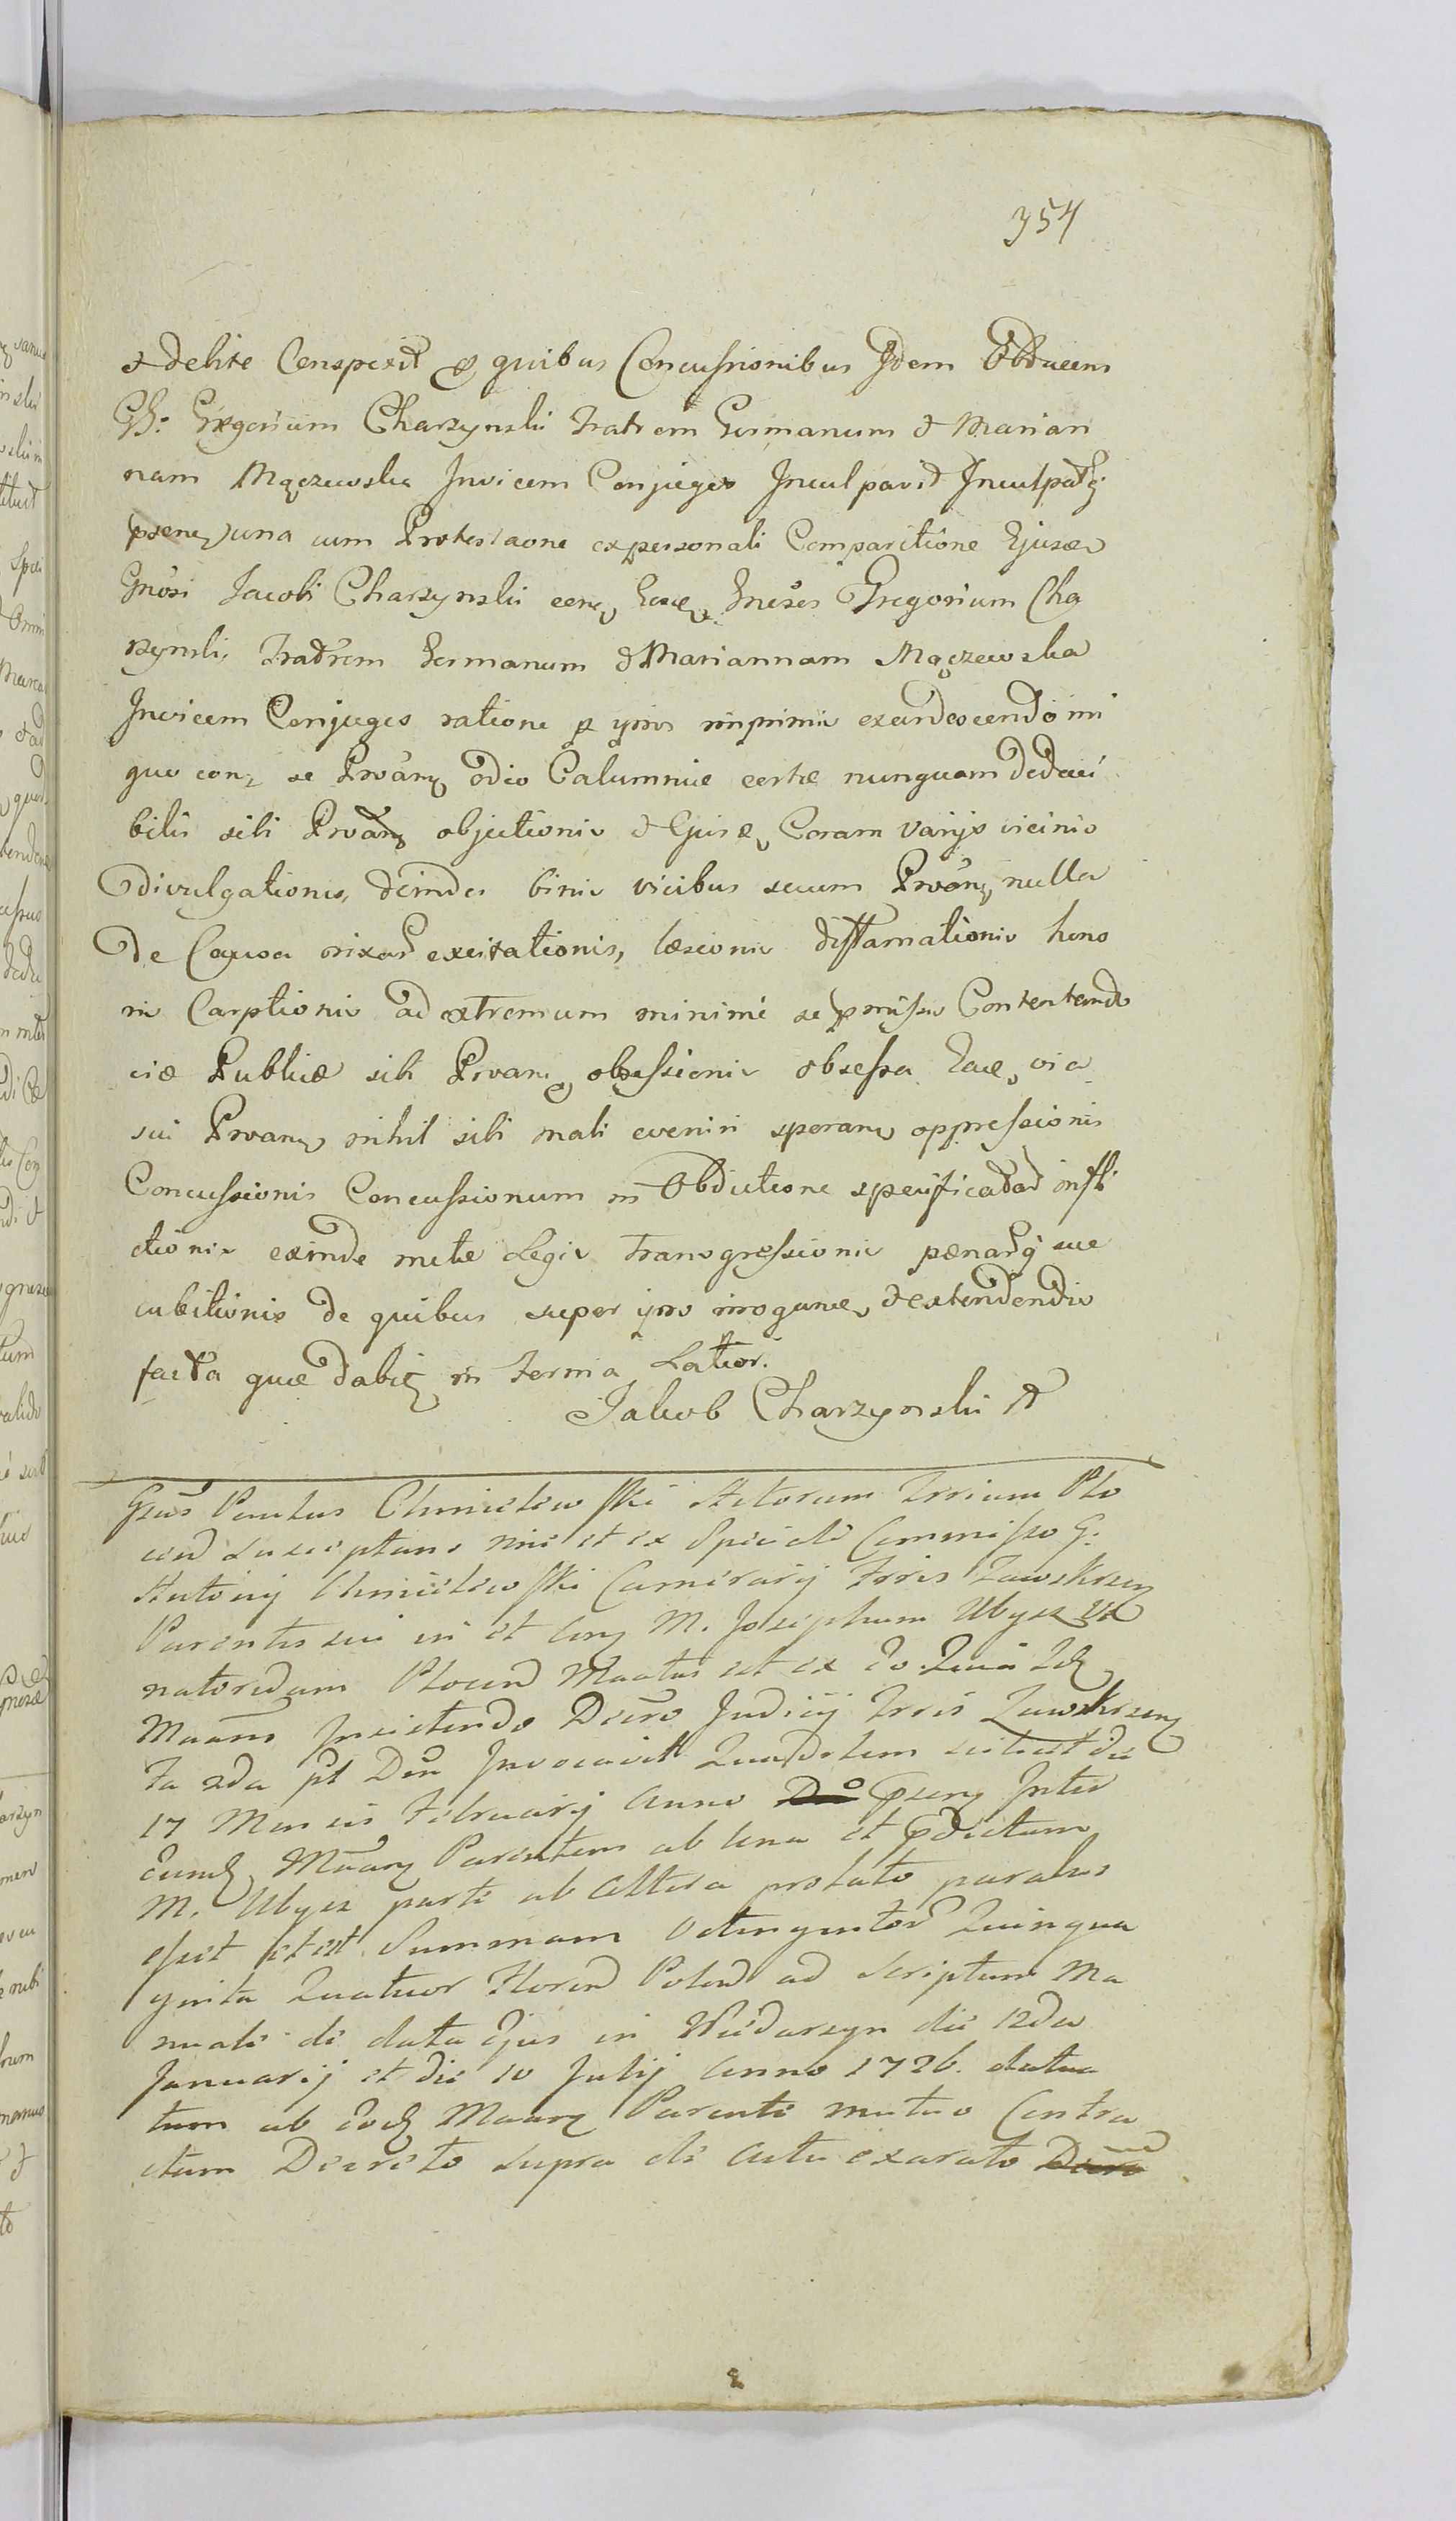 354
& debite Conspexit & quibus Concussionibus Idem Obducens
GB. Gregorium Charzynski Fratrem Germanum & Marian
nam Mączewska Invicem Conjuges Inculpavit Inculpatq
psene una cum Protestaone ex personali Comparitione Ejusd
Gnosi Jacobi Charzynski Gnosos Gregorium Cha
rzynski Fratrem Germanum & Mariannam Mączewska
Invicem Conjuges ratione imprimis exardescendo ini
quo con se Prvan odio Calumniæ certæ nunquam deduci
bilis sibi Prvan objectionis & Ejusd Coram varijs vicinis
divulgationis, deinde binis vicibus secum Prvan nulla
de Causa rixar excitationis, læsionis diffamationis hono
ris Carptionis ad extremum minime se pmissis Contentando
viæ Publicæ sibi Prvan obsessionis obsessa via
sui Prvan nihil sibi mali eveniri speran oppressionis
Concussionis Concussionum in Obductione specificatar infli
ctionis exinde metæ Legis transgressionis pænarq suc
cubitionis de quibus super irrogan & extendendis
facta quæ dabit in Termin Latior.
Jakob Charzynski
Gsus Paulus Chmielewski Actorum Trrium Plo
cen Susceptans nne et ex Speciali Commisso G.
Antonij Chmielewski Camerarij Trris Zawskrzen
Parentis sui in et M. Josephum Ubysz
natoredam Plocen Maatus est ex eo Quia
Maans Insistendo Decro Judicij Trris Zawskrzen
Fa 2da pt Dni Invocavit Quadolem scilicet die
17 Mensis Februarij Anno pseny Inter
Eund Maany Parentem ab una et Pdictum
M. Ubysz parte ab altera prolato paratus
esset Summam Octingentor Quinqua
ginta Quatuor Floren Polon ad Scriptum Ma
nuale de data Ejus in Niedarzyn die 12da
Januarij et die 10 Julij Anno 1726. datua
tum ab Eod Maany Parente mutuo Contra
ctum Decreto supra de actu exarato